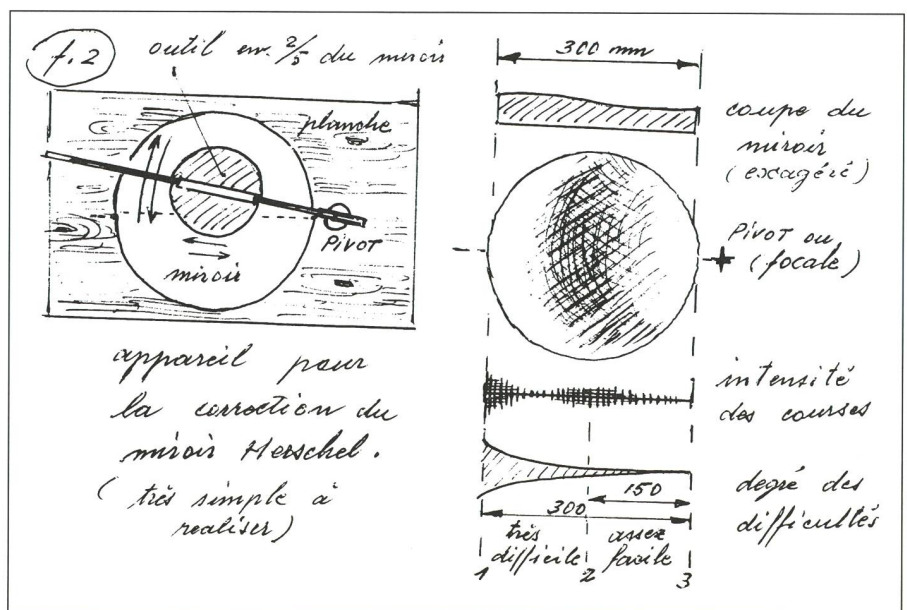 f.2
outil env. 2/5 du miroir
planche
PIVOT
miroir
appareil pour
la correction du
miroir Herschel.
(très simple à
realiser)
300 mm
coupe du
miroir
(exagéré)
PIVOT ou
(focale)
intensité
des courses
150
300
degré des
difficultés
très
difficile
assez
facile
1
2
3